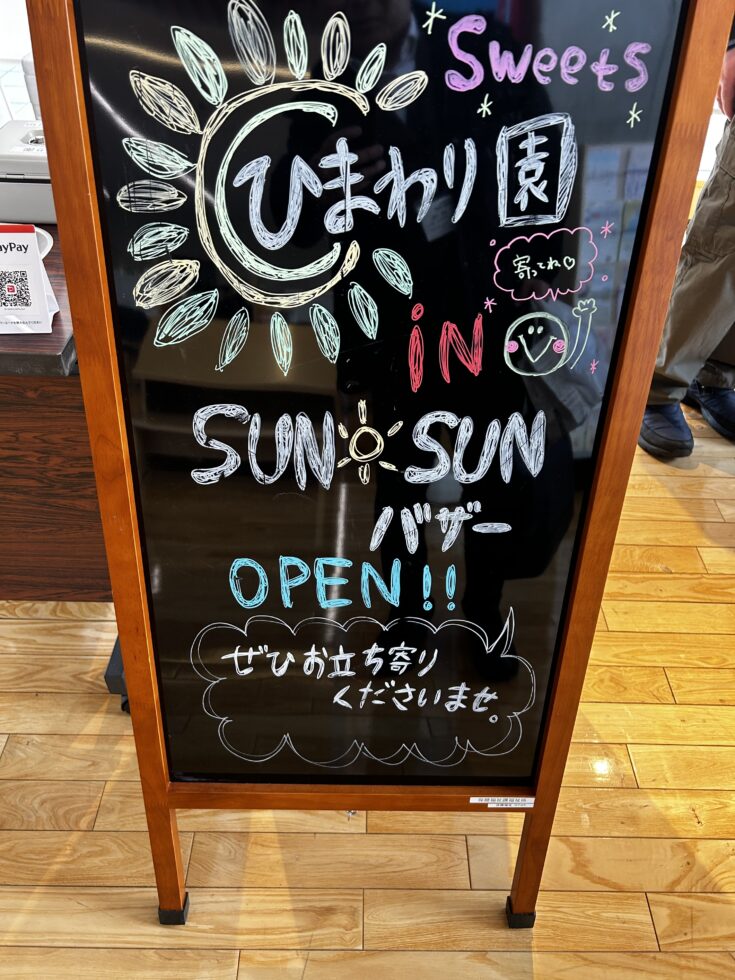 Sweets
ひまわり園
寄ってね♡
iN
SUN SUN
バザー
OPEN!!
ぜひお立ち寄り
くださいませ。
ayPay